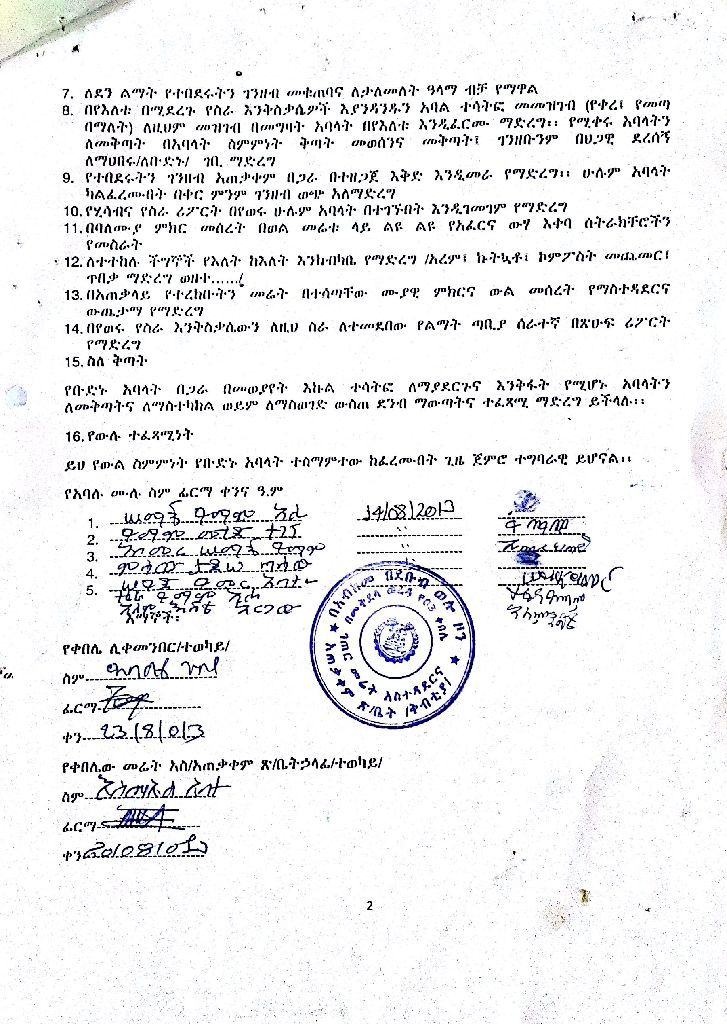 7. ለደን ልማት የተበደሩትን ገንዘብ መቁጠባና ለታለመለት ዓላማ ብቻ የማዋል
8. በየእለቱ በሚደረጉ የስራ እንቅስቃሴዎች እያንዳንዱን አባል ተሳትፎ መመዝገብ (የቀረ፤ የመጣ
በማለት) ለዚህም መዝገብ በመግዛት አባላት በየእለቱ እንዲፈርሙ ማድረግ፡፡ የሚቀሩ አባላትን
ለመቅጣት በአባላት ስምምነት ቅጣት መወሰንና መቅጣት፤ ገንዘቡንም በህጋዊ ደረሰኝ
ለማህበሩ/ለቡድኑ/ ገቢ ማድረግ
9. የተበደሩትን ገንዘብ አጠቃቀም በጋራ በተዘጋጀ እቅድ እንዲመራ የማድረግ፡፡ ሁሉም አባላት
ካልፈረሙበት በቀር ምንም ገንዘብ ወጭ አለማድረግ
10. የሂሳብና የስራ ሪፖርት በየወሩ ሁሉም አባላት በተገኙበት እንዲገመገም የማድረግ
11. በባለሙያ ምክር መሰረት በወል መሬቱ ላይ ልዩ ልዩ የአፈርና ውሃ እቀባ ስትራክቸሮችን
የመስራት
12. ለተተከሉ ችግኞች የእለት ከእለት እንክብካቤ የማድረግ /አረም፤ ኩትኳቶ፤ ኮምፖስት መጨመር፤
ጥበቃ ማድረግ ወዘተ....../
13. በአጠቃላይ የተረከቡትን መሬት በተሰጣቸው ሙያዊ ምክርና ውል መሰረት የማስተዳደርና
ውጤታማ የማድረግ
14. በየወሩ የስራ እንቅስቃሴውን ለዚህ ስራ ለተመደበው የልማት ጣቢያ ሰራተኛ በጽሁፍ ሪፖርት
የማድረግ
15. ስለ ቅጣት
የቡድኑ አባላት በጋራ በመወያየት እኩል ተሳትፎ ለማያደርጉና እንቅፋት የሚሆኑ አባላትን
ለመቅጣትና ለማስተካከል ወይም ለማስወገድ ውስጠ ደንብ ማውጣትና ተፈጻሚ ማድረግ ይችላሉ፡፡
16. የውሉ ተፈጻሚነት
ይህ የውል ስምምነት የቡድኑ አባላት ተስማምተው ከፈረሙበት ጊዜ ጀምሮ ተግባራዊ ይሆናል፡፡
የአባሉ ሙሉ ስም ፊርማ ቀንና ዓ.ም
1. 14/08/2013
2.
3.
4.
5.
እማኞች፡
የቀበሌ ሊቀመንበር/ተወካይ/
ስም
ፊርማ
ቀን 23/8/013
የቀበሌው መሬት አስ/አጠቃቀም ጽ/ቤትኃላፊ/ተወካይ/
ስም
ፊርማ
ቀን
2